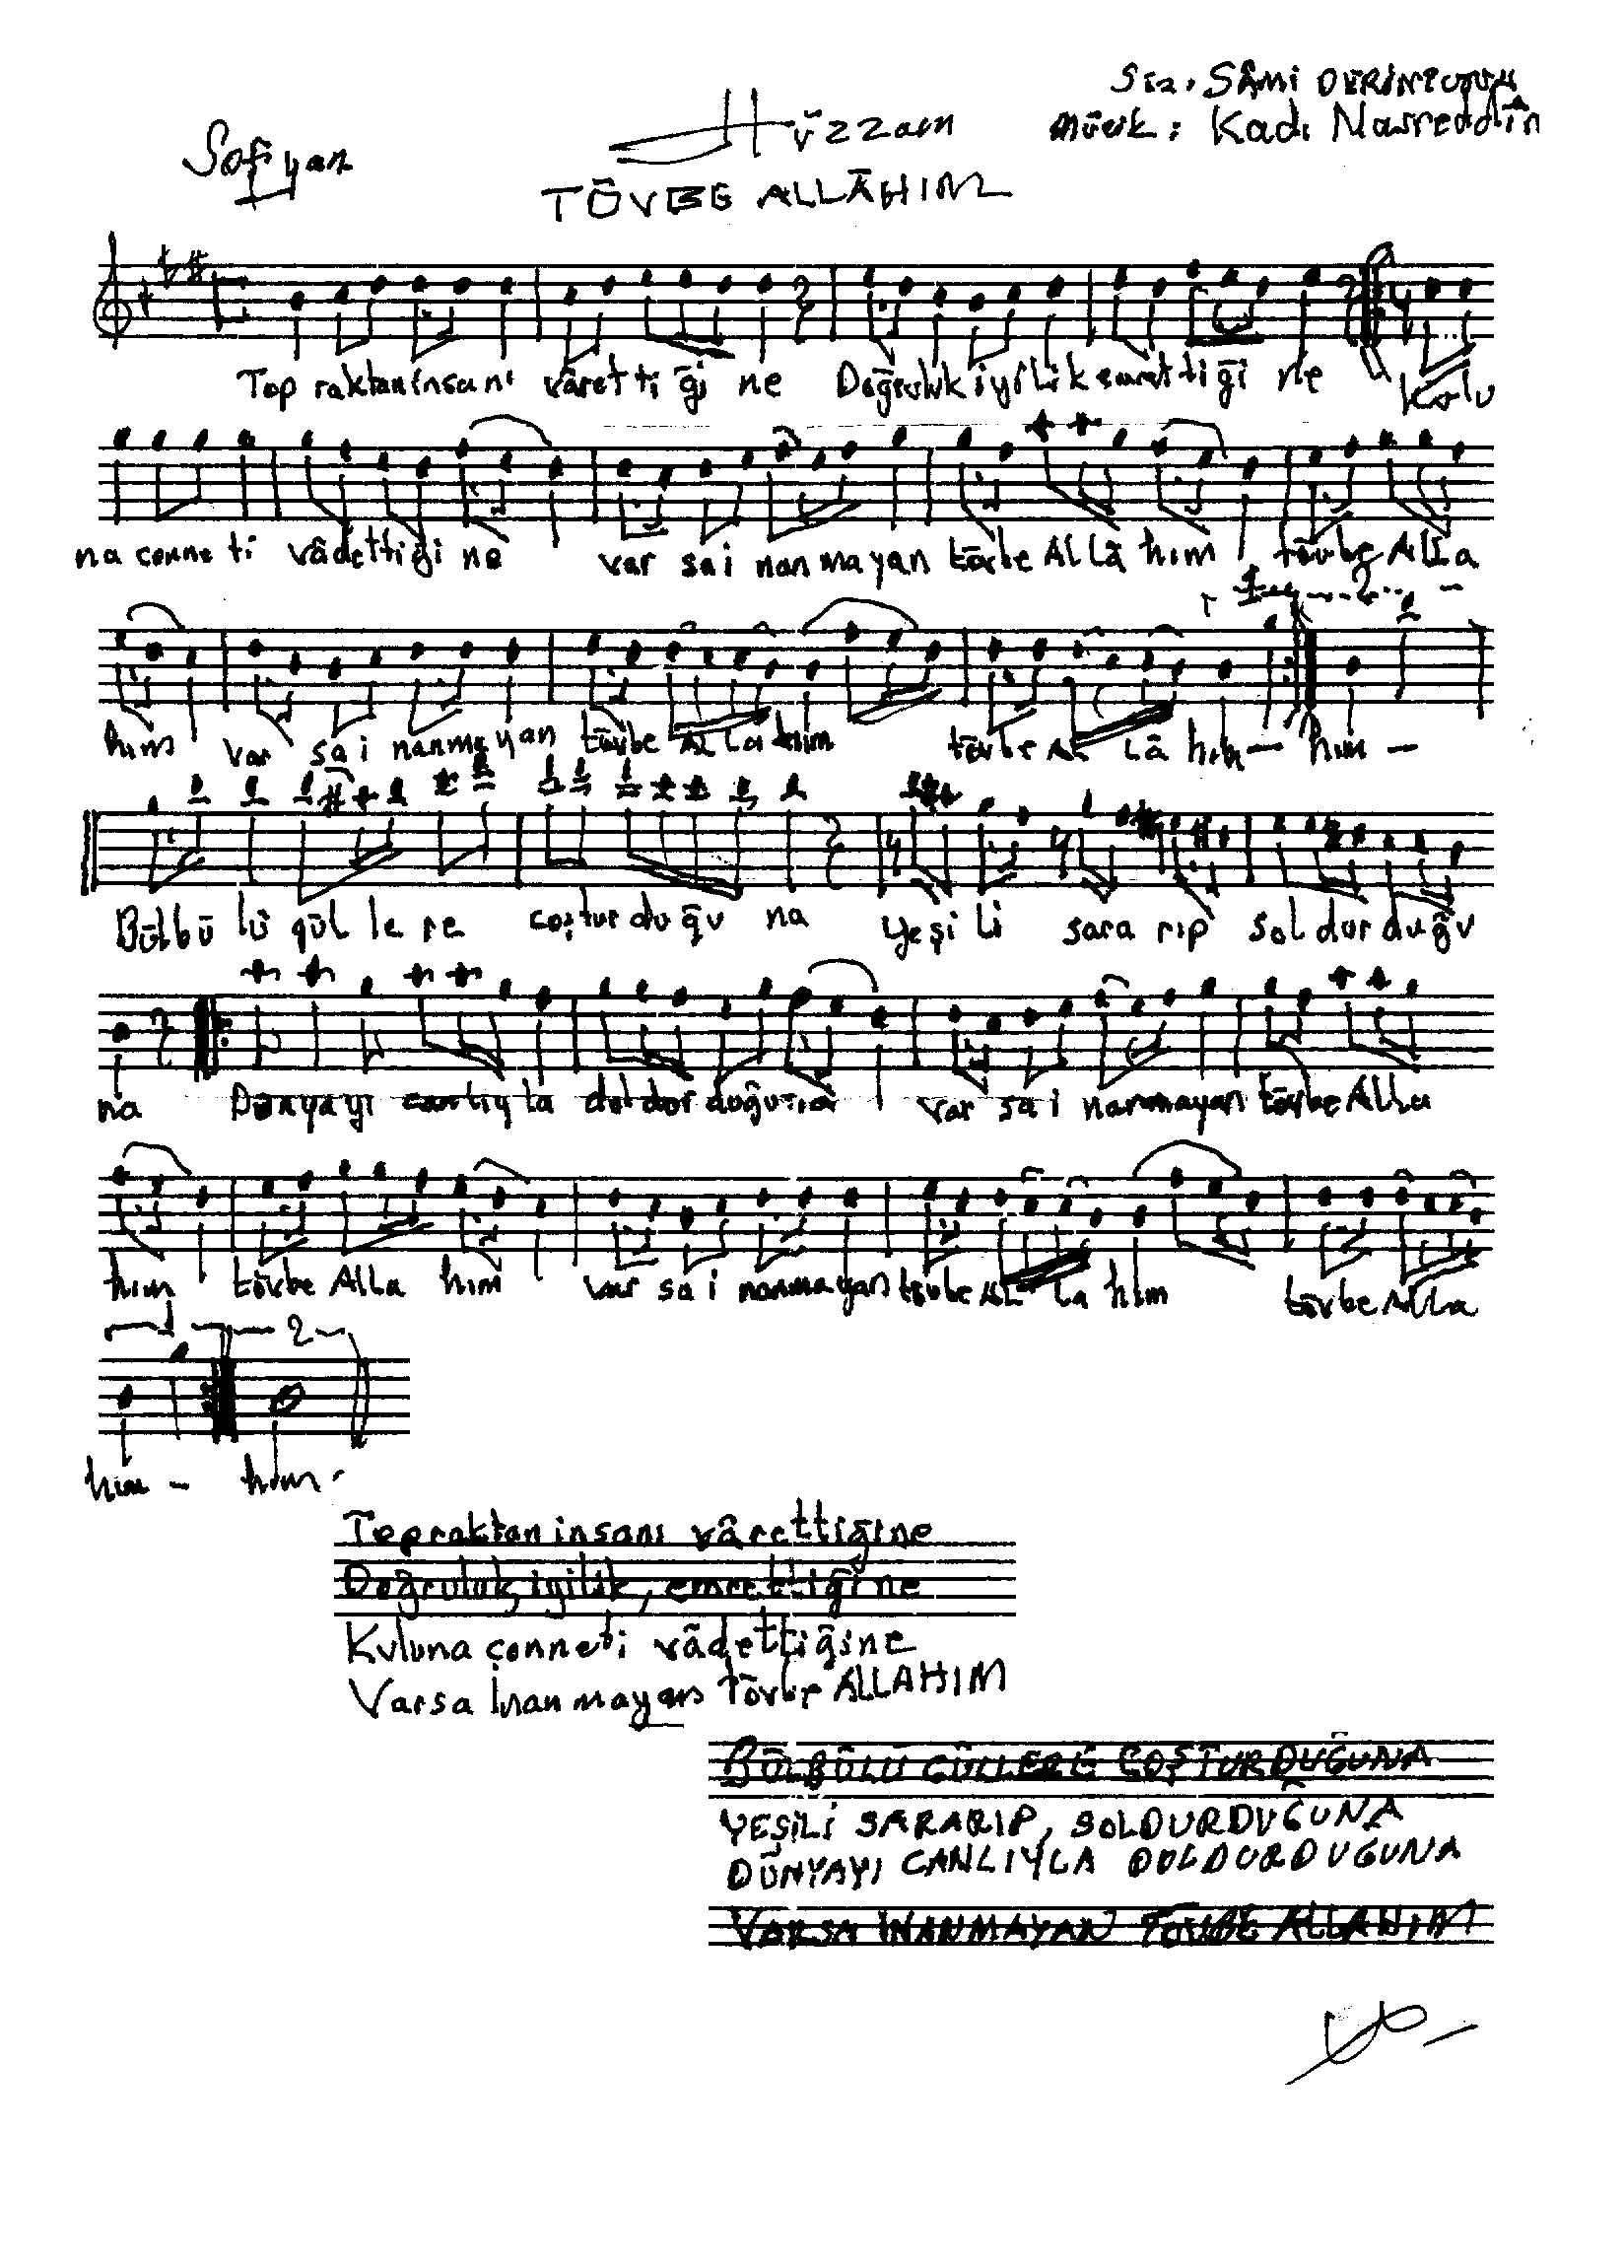 Söz. SÂMi DERİNTUNA
Sofyan
Hüzzam
Müzik : Kadı Nasreddin
TÖVBE ALLÂHIM
Top raktan insanı vâret ti ği ne Doğruluk iyi lik emret ti ği ne Kulu
na cenne ti vâdettiği ne var sa i nanmayan tövbe Allâ hım tövbe Alla
1 2
hım var sa i nanmayan tövbe Al la hım tövbe Al lâ hım - hım -
Bülbü lü gül le re coştur duğu na Yeşi li sara rıp sol durduğu
na Dünyayı canlıyla dol durduğuna var sa i nanmayan tövbe Alla
hım tövbe Alla hım var sa i nanmayan tövbe Al la hım tövbe Alla
1 2
hım - hım -
Topraktan insanı vârettiğine
Doğruluk, iyilik, emrettiğine
Kuluna çenneti vâdettiğine
Varsa İnanmayan tövbe ALLAHIM
BÜLBÜLÜ GÜLLERE COŞTURDUĞUNA
YEŞİLİ SARARIP, SOLDURDUĞUNA
DÜNYAYI CANLIYLA DOLDURDUĞUNA
VARSA İNANMAYAN TÖVBE ALLAHIM